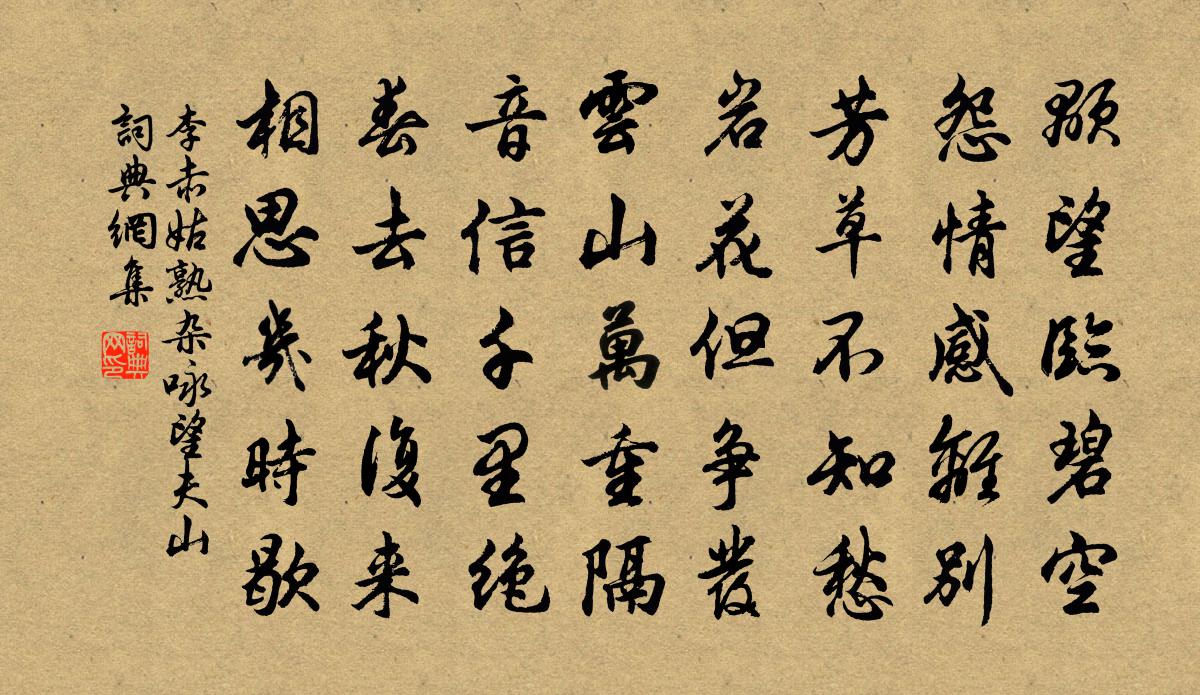 顒望臨碧空
怨情感離别
芳草不知愁
岩花但争發
雲山萬重隔
音信千里绝
春去秋復来
相思幾時歇
李赤姑熟杂咏望夫山
詞典網集
詞典
网印